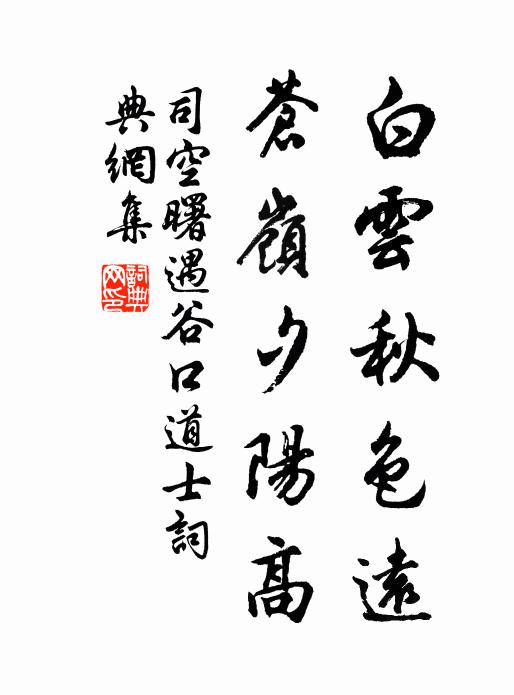 白雲秋色遠
蒼嶺夕陽高
司空曙遇谷口道士詞
典網集
詞典
网印